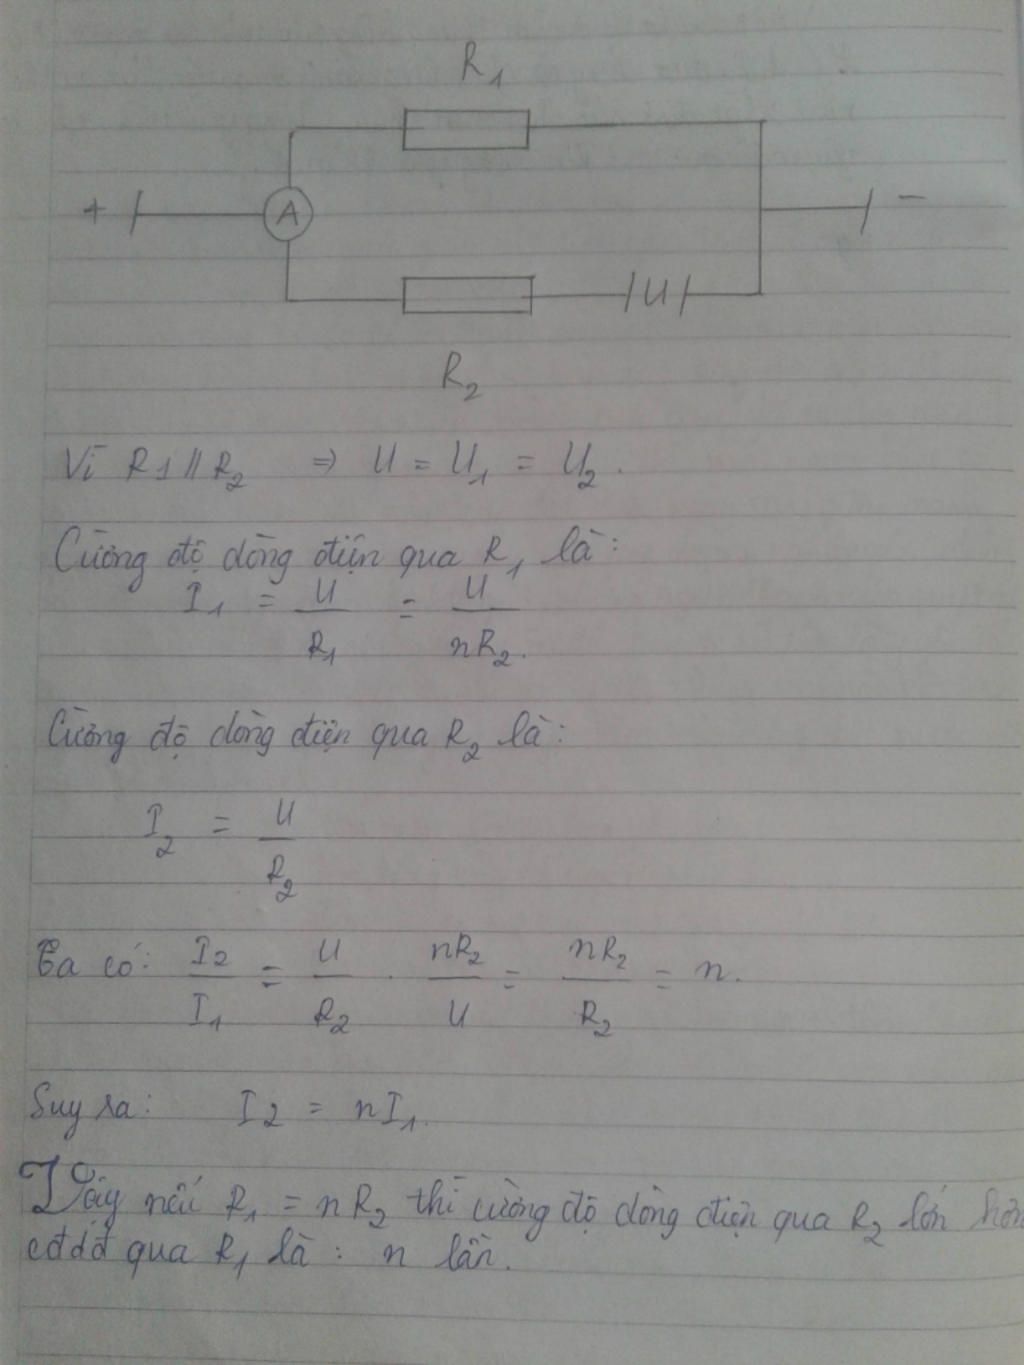 R₁
+ A -
U
R₂
Vì R1 // R₂ ⇒ U = U₁ = U₂.
Cường độ dòng điện qua R₁ là:
I₁ = U/R₁ = U/nR₂.
Cường độ dòng điện qua R₂ là:
I₂ = U/R₂
Ta có: I₂/I₁ = U/R₂ . nR₂/U = nR₂/R₂ = n.
Suy ra: I₂ = nI₁.
Vậy nếu R₁ = nR₂ thì cường độ dòng điện qua R₂ lớn hơn
cđdđ qua R₁ là: n lần.